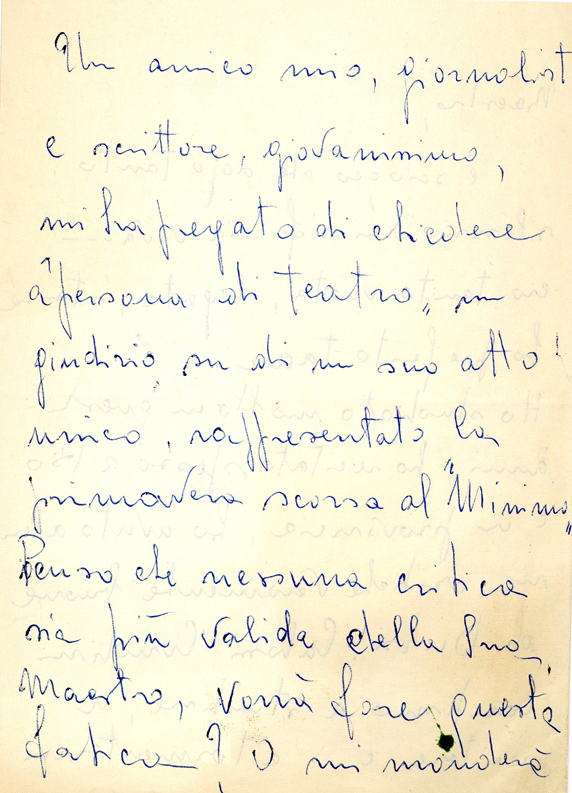 Un amico mio, giornalist
e scrittore, giovanissimo,
mi ha pregato di chiedere
a "persona di teatro" un
giudizio su di un suo atto
unico, rappresentato la
primavera scorsa al "Minimo"
Penso che nessuna critica
sia più valida della Sua,
Maestro, vorrà fare questa
fatica? O mi manderà